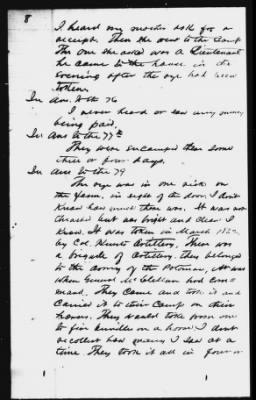 8
I heard my mother ask for a
receipt. Then she went to the Camp
The one she asked was a Lieutenant
he came to the house in the
evening after the rye had been
taken.
In Ans. to the 76
I never heard or saw any money
being paid.
In Ans to the 77th
They were encamped there some
three or four days.
In Ans to the 79
The rye was in one rick on
the farm, in sight of the door, I don't
know how much there was. It was not
thrashed but was bright and clean I
know. It was taken in March 1862
by Col. Hunts Artillery. There was
a brigade of Artillery. they belonged
to the Army of the Potomac, it was
when General McClellan had com-
mand. They came and took it and
Carried it to their Camp on their
horses. They would take from one
to five bundles on a horse I dont
recollect how many I saw at a
time. They took it all in four or